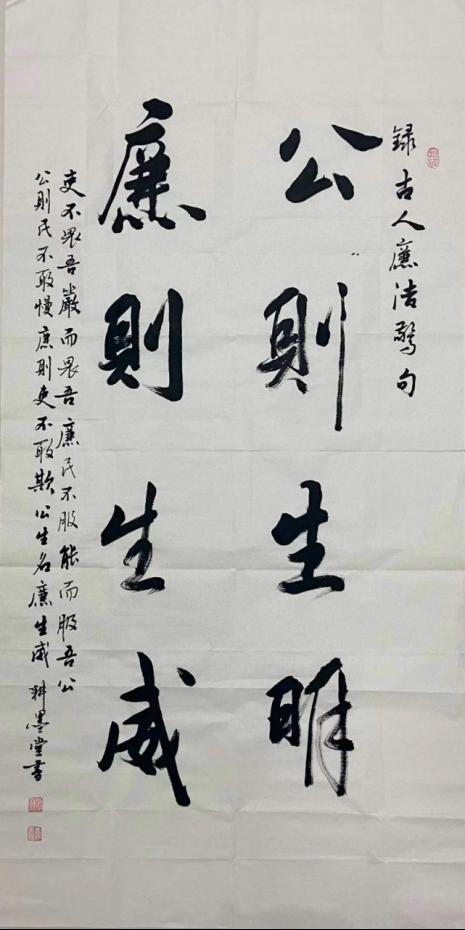 録古人廉洁警句
公則生明
廉則生威
吏不畏吾嚴而畏吾廉民不服能而服吾公
公則民不敢慢廉則吏不敢欺公生名廉生威 耕墨堂書